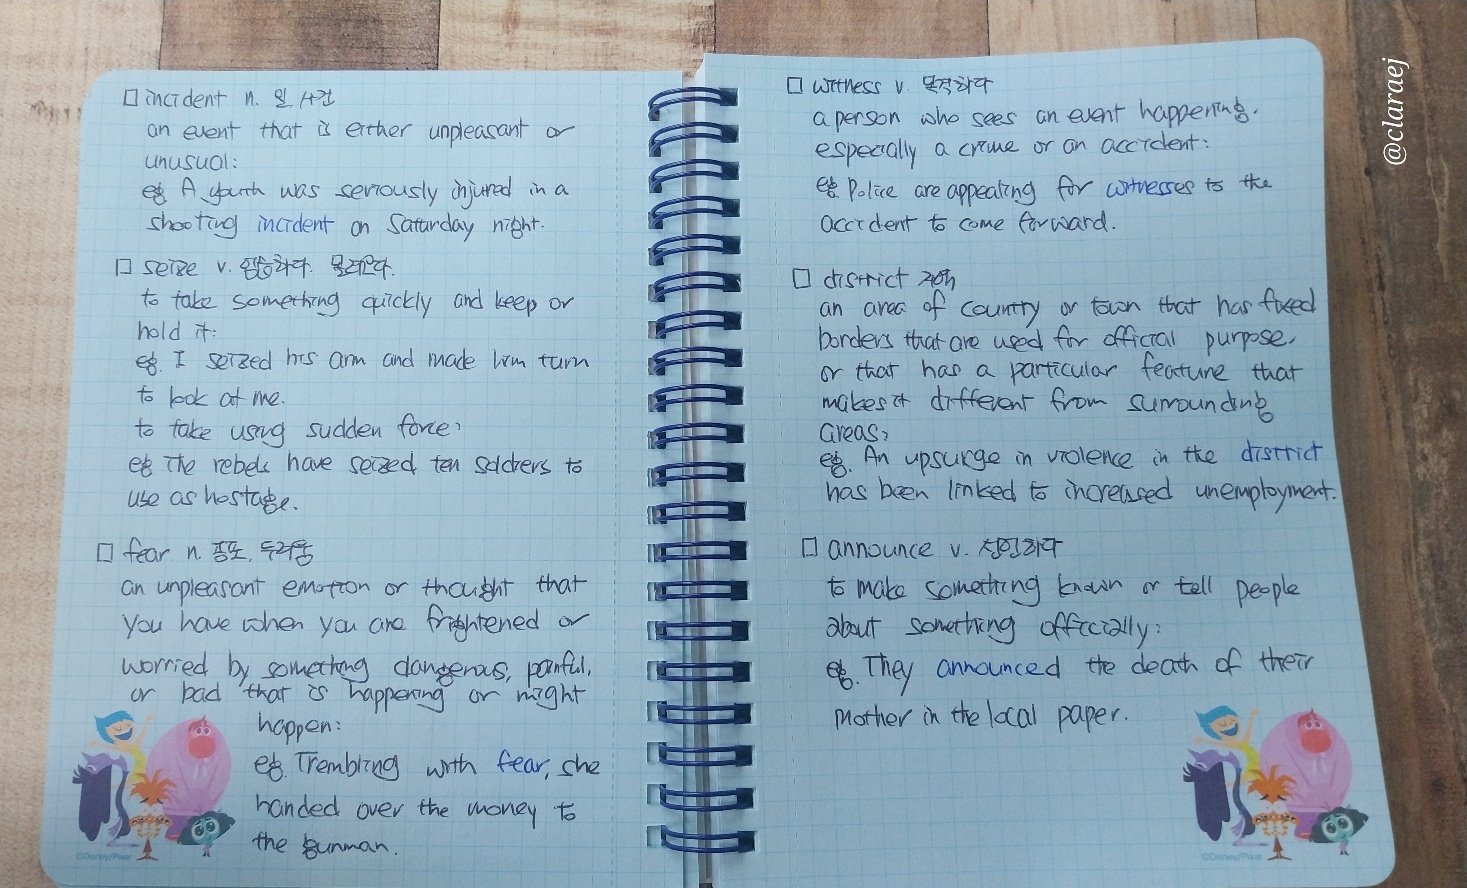 □ incident n. 일, 사건
an event that is either unpleasant or
unusual:
eg A youth was seriously injured in a
shooting incident on Saturday night.
□ seize v.
to take something quickly and keep or
hold it:
eg. I seized his arm and made him turn
to look at me.
to take using sudden force:
eg The rebels have seized ten soldiers to
use as hostage.
□ fear n. 공포, 두려움
an unpleasant emotion or thought that
you have when you are frightened or
worried by something dangerous, painful,
or bad that is happening or might
happen:
eg. Trembling with fear, she
handed over the money to
the gunman.
©Disney/Pixar
□ witness v. 목격하다
a person who sees an event happening,
especially a crime or an accident:
eg. Police are appealing for witnesses to the
accident to come forward.
□ district
an area of country or town that has fixed
borders that are used for official purpose,
or that has a particular feature that
makes it different from surrounding
areas:
eg. An upsurge in violence in the district
has been linked to increased unemployment.
□ announce v.
to make something known or tell people
about something officially:
eg. They announced the death of their
mother in the local paper.
©Disney/Pixar
@claraej